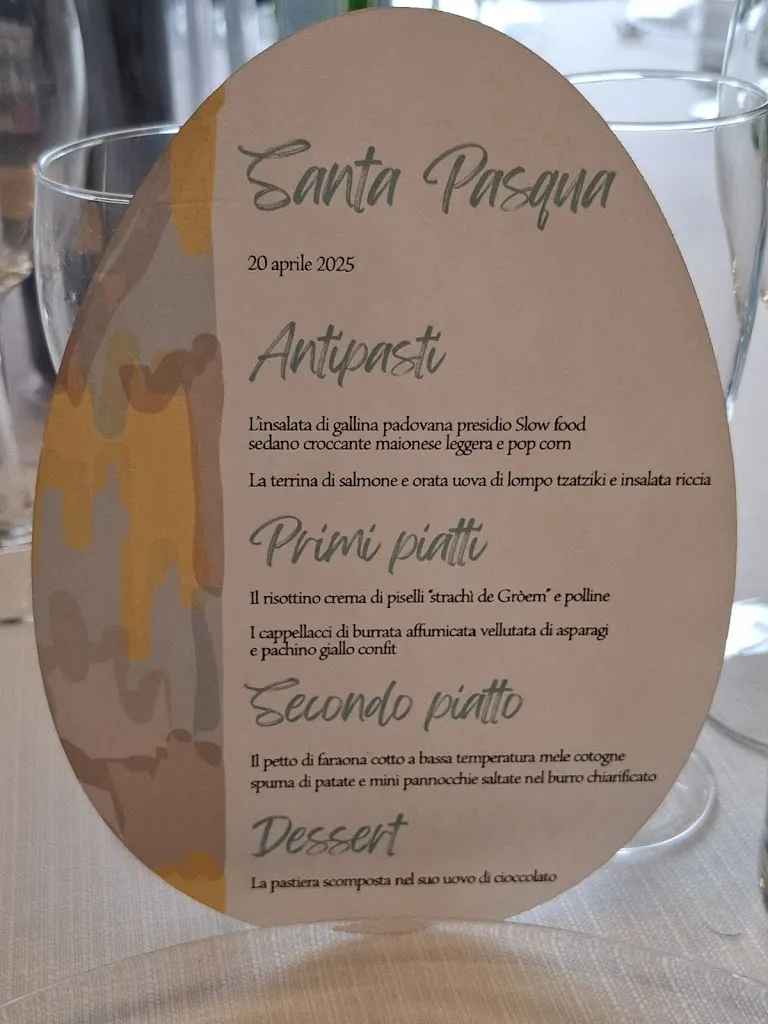 Santa Pasqua
20 aprile 2025
Antipasti
L'insalata di gallina padovana presidio Slow food
sedano croccante maionese leggera e pop corn
La terrina di salmone e orata uova di lompo tzatziki e insalata riccia
Primi piatti
Il risottino crema di piselli "strachì de Gròem" e polline
I cappellacci di burrata affumicata vellutata di asparagi
e pachino giallo confit
Secondo piatto
Il petto di faraona cotto a bassa temperatura mele cotogne
spuma di patate e mini pannocchie saltate nel burro chiarificato
Dessert
La pastiera scomposta nel suo uovo di cioccolato